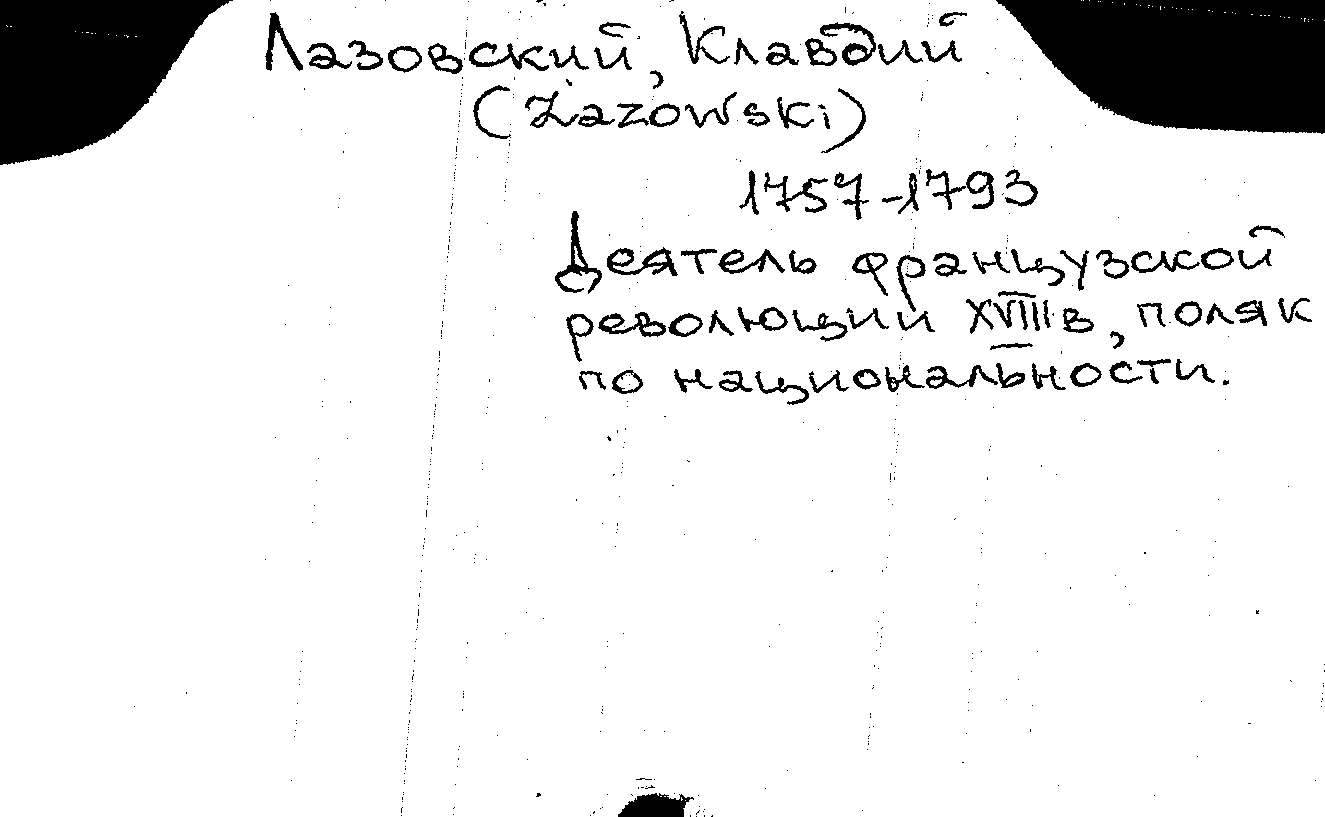 Лазовский, Клавдий
(Łazowski)
1757-1793
Деятель французской
революции XVIII в, поляк
по национальности.